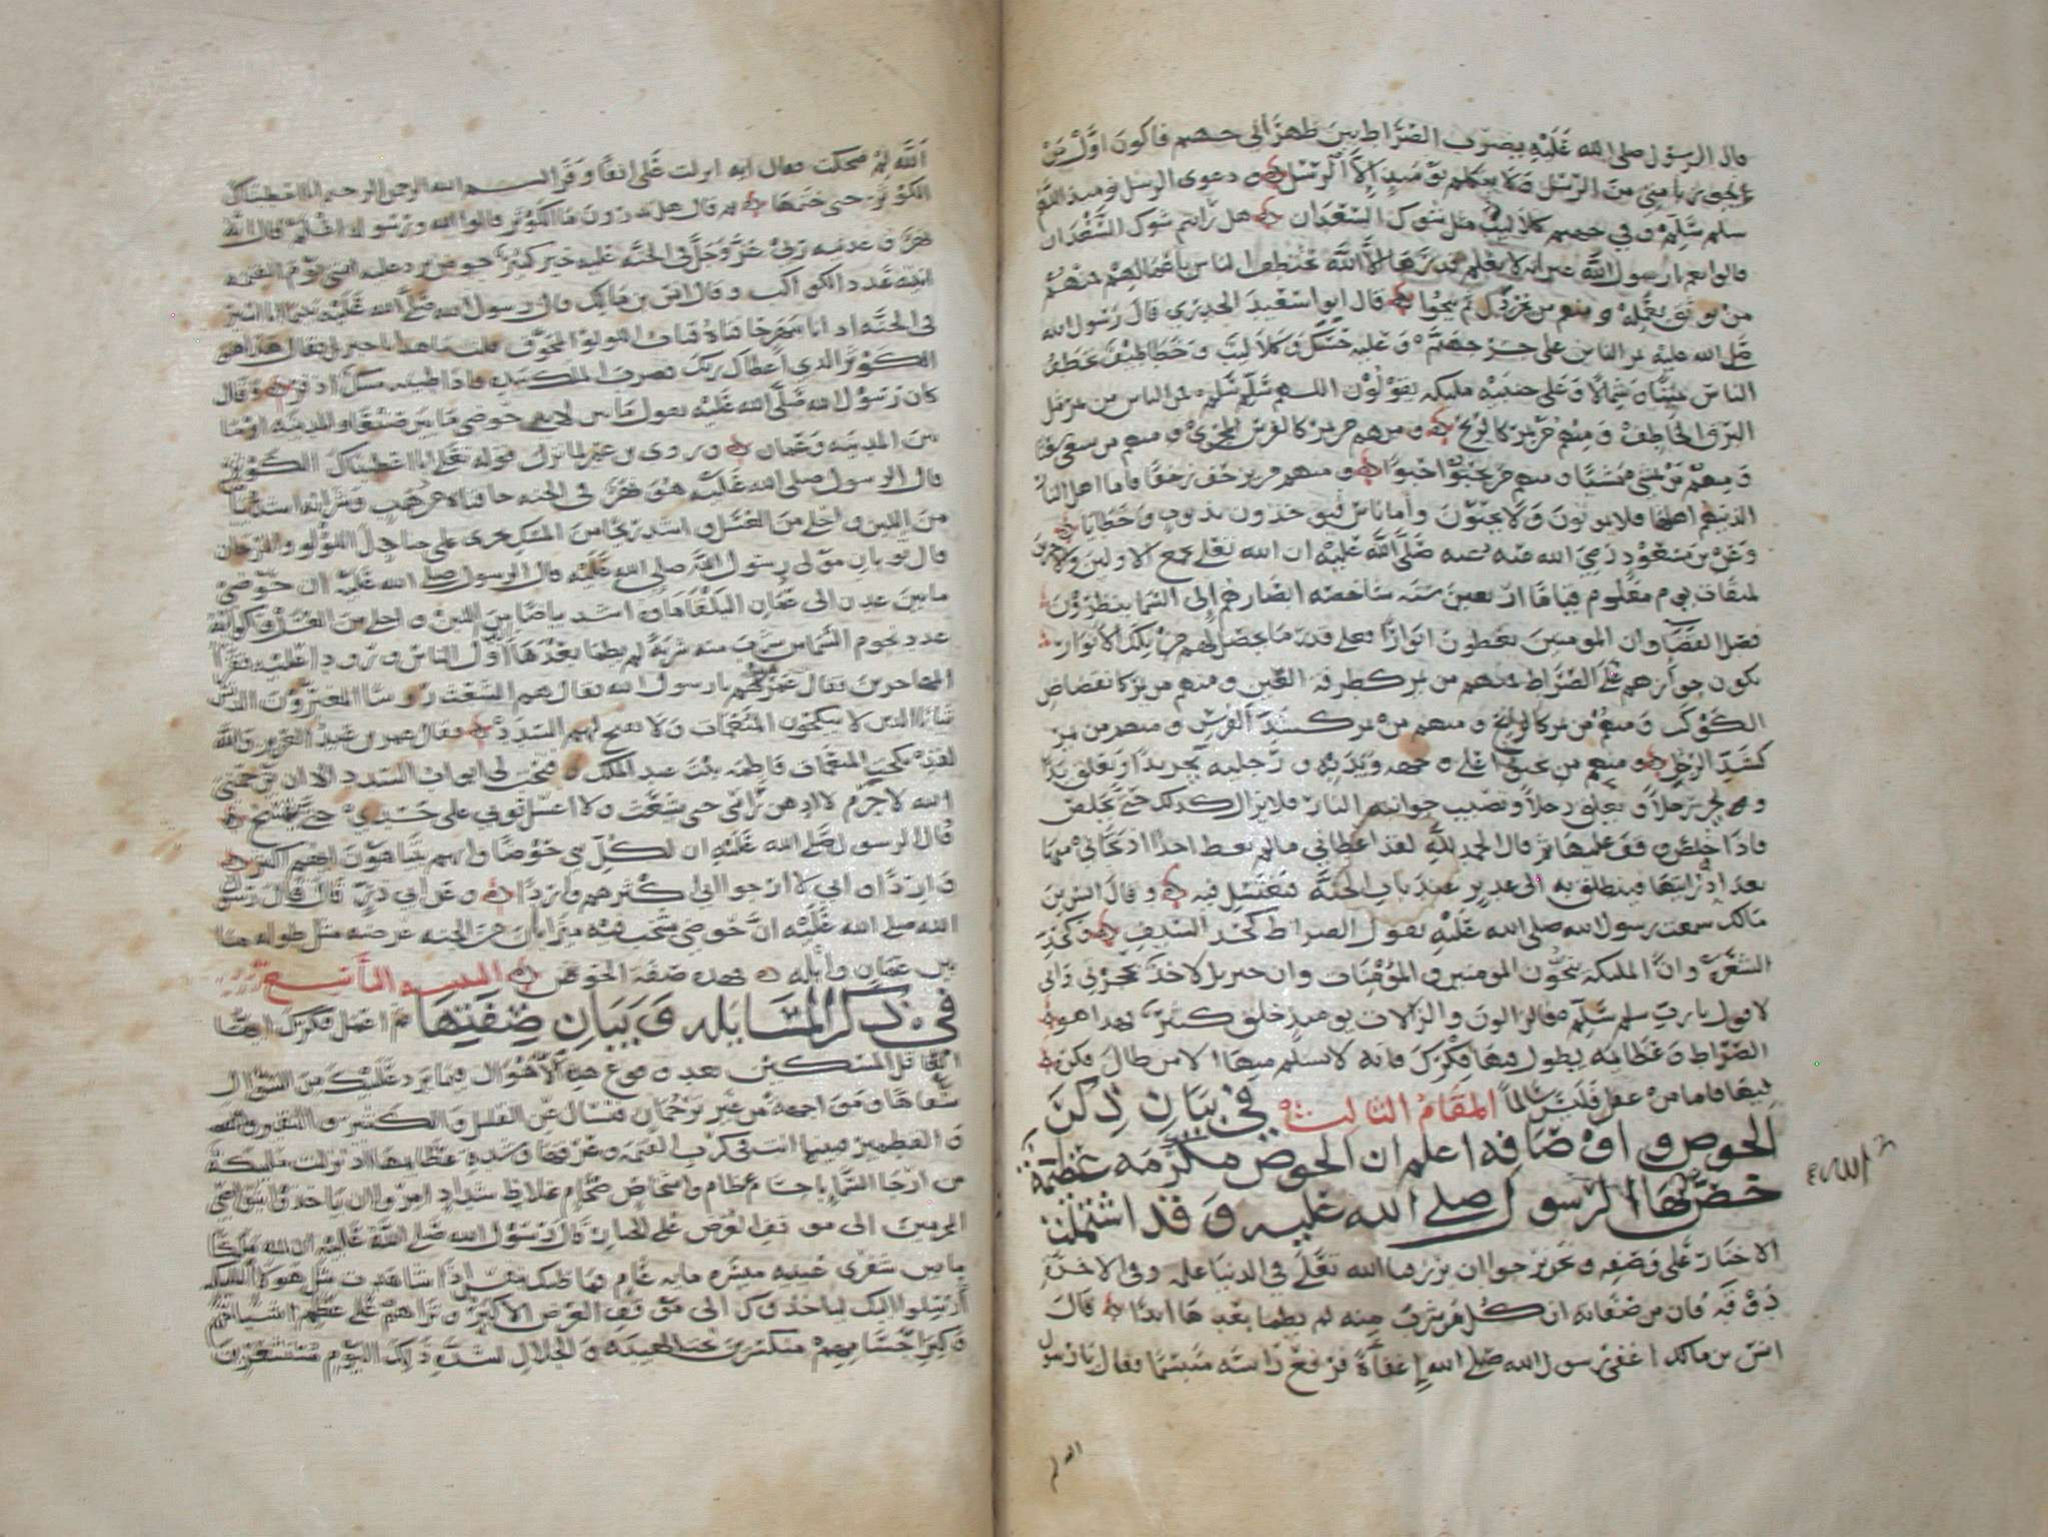 قال الرسول صلى الله عليه يضرب الصراط بين ظهراني جهنم فاكون اول من
يجوز بامتي من الرسل ولا يتكلم يومئذ الا الرسل ودعوى الرسل يومئذ اللهم
سلم سلم وفي جهنم كلاليب مثل شوك السعدان هل رأيتم شوك السعدان
قالوا نعم يارسول الله غير انه لا يعلم قدرها الا الله تختطف الناس باعمالهم فمنهم
من يوبق بعمله ومنهم من يخردل ثم ينجوا قال ابو سعيد الخدري قال رسول الله
صلى الله عليه يمر الناس على جسر جهنم وعليه حسك وكلاليب وخطاطيف تخطف
الناس يمينا وشمالا وعلى جنبتيه مليكة يقولون اللهم سلم سلم فمن الناس من يمر مثل
البرق الخاطف ومنهم من يمر كالريح ومنهم من يمر كالفرس المجرى ومنهم من يسعى سعيا
ومنهم من يمشي مشيا ومنهم من يحبوا حبوا ومنهم من يزحف زحفا فاما اهل النار
الذينهم اهلها فلا يموتون ولا يحيون واما ناس فيوخذون بذنوب وخطايا
وعن بن مسعود رضي الله عنه عنه صلى الله عليه ان الله تعلى يجمع الاولين والاخرين
لميقات يوم معلوم قياما اربعين سنة شاخصة ابصارهم الى السما ينظرون
فصل القضا وان المومنين يعطون انوارا فعلى قدر ما يحصل لهم من تلك الانوار
يكون جوازهم على الصراط فمنهم من يمر كطرفة العين ومنهم من يمر كانقضاض
الكوكب ومنهم من يمر كالريح ومنهم من يمر كشد الفرس ومنهم من يمر
كشد الرجل ومنهم من يحبوا على وجهه ويديه ورجليه يجر يدا وتعلق يد
ويجر رجلا وتعلق رجلا وتصيب جوانبه النار فلا يزال كذلك حتى يخلص
فاذا خلص وقف عليها ثم قال الحمد لله لقد اعطاني مالم يعط احدا اذ نجاني منها
بعد اذ رايتها فينطلق به الى غدير عند باب الجنة فيغتسل فيه وقال انس بن
مالك سمعت رسول الله صلى الله عليه يقول الصراط كحد السيف وكحد
الشعرة وان المليكة ينجون المومنين والمؤمنات وان جبريل لاخذ بحجزتي واني
لاقول يارب سلم سلم فالزالون والزالات يوميذ خلق كثير فهذا هو
الصراط وعظايمه يطول فيها فكرك فانه لا يسلم منها الا من طال فكره
فيها فاما من عقل فليس سالما المقام الثالث في بيان ذكر
الحوض واوصافه اعلم ان الحوض مكرمة عظيمة
خص بها الرسول صلى الله عليه وقد اشتملت
الاخبار على وصفه ونحن نرجوا ان يرزقنا الله تعلى في الدنيا علمه وفي الاخرة
ذوقه فان من صفاته ان كل من شرب منه لم يظما بعدها ابدا قال
انس بن مالك اغفى رسول الله صلى الله اغفاة فرفع راسه متبسما فقال يارسول
الله لم
الله لم ضحكت فقال اية انزلت علي انفا وقرا بسم الله الرحمن الرحيم انا اعطيناك
الكوثر حتى ختمها ثم قال هل تدرون ما الكوثر قالوا الله ورسوله اعلم قال انه
نهر وعدنيه ربي عز وجل في الجنة عليه خير كثير حوض يرد عليه امتي يوم القيمة
انيته عدد الكواكب وقال انس بن مالك قال رسول الله صلى الله عليه بينما انا اسير
في الجنة اذ انا بنهر حافتاه قباب اللولو المجوف قلت ما هذا يا جبريل فقال هذا هو
الكوثر الذي اعطاك ربك فضرب الملك بيده فاذا طينه مسك اذفر وقال
كان رسول الله صلى الله عليه يقول ما بين لابتي حوضي ما بين صنعا والمدينة او ما
بين المدينة وعمان وروى بن عمر لما نزل قوله تعلى انا اعطيناك الكوثر
قال الرسول صلى الله عليه هو نهر في الجنة حافتاه من ذهب وشرابه اشد بياضا
من اللبن واحلى من العسل واشد ريحا من المسك يجري على جنادل اللؤلو والمرجان
قال ثوبان مولى رسول الله صلى الله عليه قال الرسول صلى الله عليه ان حوضي
ما بين عدن الى عمان البلقا ماؤه اشد بياضا من اللبن واحلى من العسل واكوابه
عدد نجوم السما من شرب منه شربة لم يظما بعدها اول الناس ورودا عليه فقرا
المهاجرين فقال عمر من هم يا رسول الله فقال هم الشعث روسا
ثيابا الذين لا ينكحون المنعمات ولا تفتح لهم السدد فقال عمر بن عبد العزيز والله
لقد نكحت المنعمات فاطمة بنت عبد الملك وفتحت لي ابواب السدد الا ان يرحمني
الله لا جرم لا ادهن راسي حتى يشعث ولا اغسل ثوبي على جسدي حتى يتسخ
قال الرسول صلى الله عليه ان لكل نبي حوضا وانهم يتباهون ايهم اكثر
واردا واني لارجوا الي كثرهم واردا وعن ابي ذر قال قال رسول
الله صلى الله عليه ان حوضي يشخب فيه ميزابان من الجنة عرضه مثل طوله ما
بين عمان وايلة فهذه صفة الحوض
في ذكر المسايلة وبيان صفتها ثم اعمل فكرك ايها
الغافل المسكين بعد وقوع هذه الاهوال فيما يرد عليك من السؤال
شفاها من غير ترجمان فتسال عن القليل والكثير والنقير
والقطمير فبينما انت في كرب القيمة وعرقها وشدة عظايمها اذ نزلت مليكة
من ارجا السما باجسام عظام واشخاص ضخام غلاظ شداد امروا ان ياخذوا بنواصي
المجرمين الى موقف العرض على الجبار قال رسول الله صلى الله عليه ان لله ملكا
ما بين شفري عينيه مسيرة ماية عام فما ظنك بنفسك اذا شاهدت مثل هولا المليكة
ارسلوا اليك لياخذوك الى موقف العرض الاكبر وتراهم على عظم اشباحهم
وكبر اجسامهم منكسرين لهيبة ذي الجلال لشدة ذلك اليوم مستشعرين